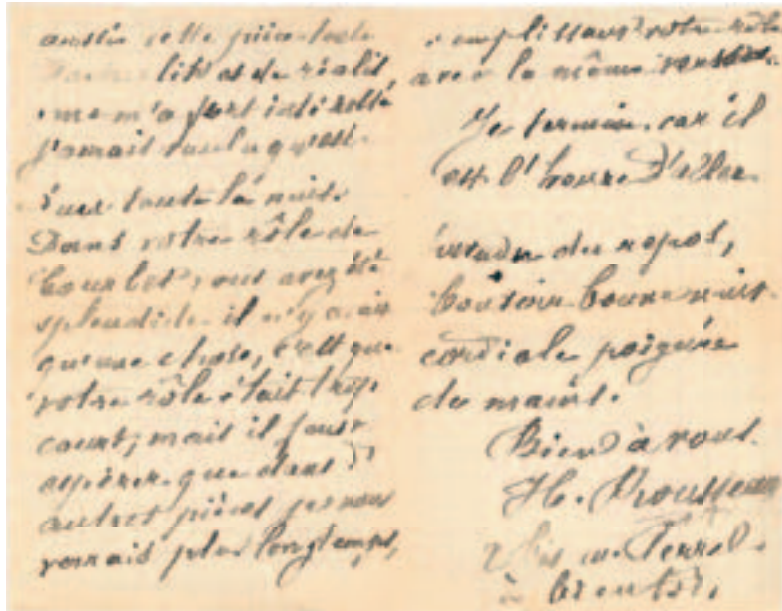 cette pièce
de réalité,
m'a fort intéressé
jamais
toute la nuit.
Dans votre rôle de
vous avez été
splendide il n'y avait
qu'une chose, c'est que
votre rôle était trop
court, mais il faut
espérer que dans d'
autres pièces je vous
verrais plus longtemps,
votre rôle
avec la même
Je termine, car il
est l'heure d'aller
prendre du repos,
bonsoir bonne nuit
cordiale poignée
de mains.
Bien à vous
H. Rousseau
2 bis rue Perrel